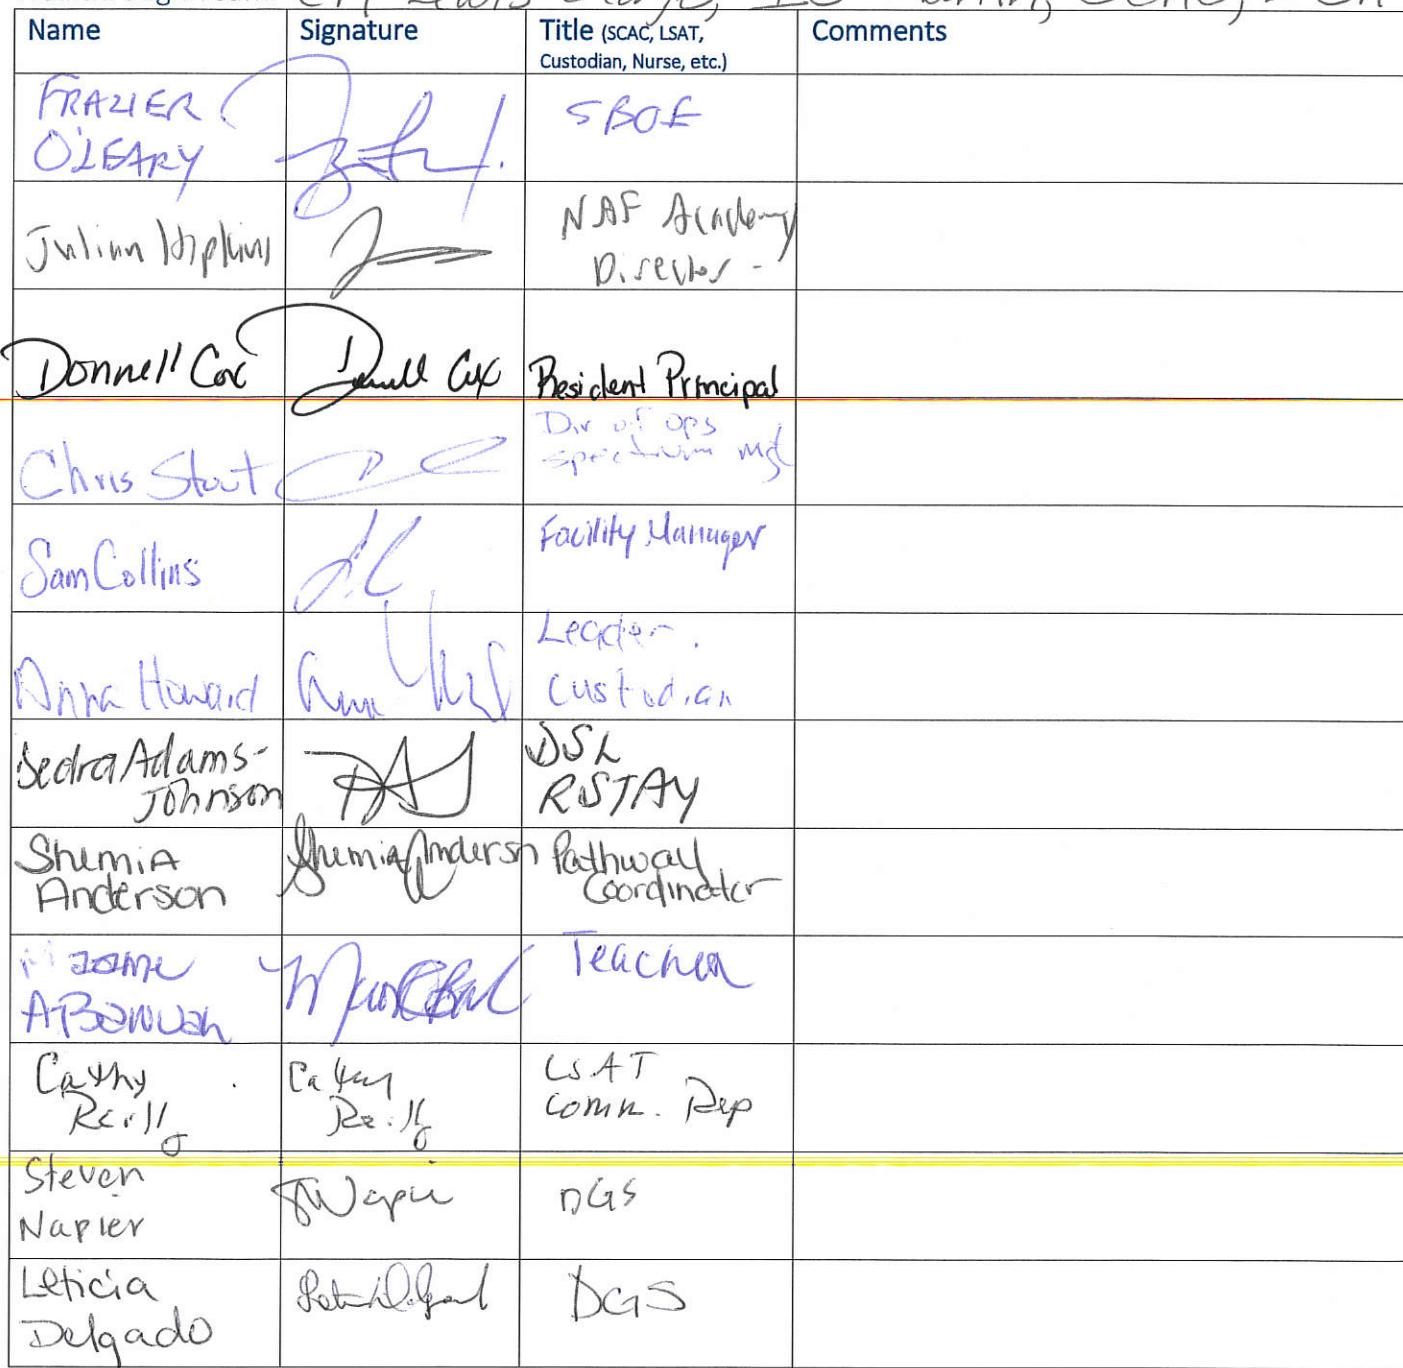 Name Signature Title (SCAC, LSAT, Comments
Custodian, Nurse, etc.)
FRAZIER
O'LEARY
SBOE
Julian Hipkins
NAF Academy
Director
Donnell Cox Donnell Cox Resident Principal
Chris Stout
Div of ops
spectrum mgt
Sam Collins
Facility Manager
Anna Howard
Leader
custodian
Dedra Adams-
Johnson
DSL
RSTAY
ShemiA
Anderson
Shemia Anderson
Pathway
Coordinator
Teacher
Cathy
Reilly
Cathy
Reilly
LSAT
comm. Rep
Steven
Napier
SNapier
DGS
Leticia
Delgado
DGS